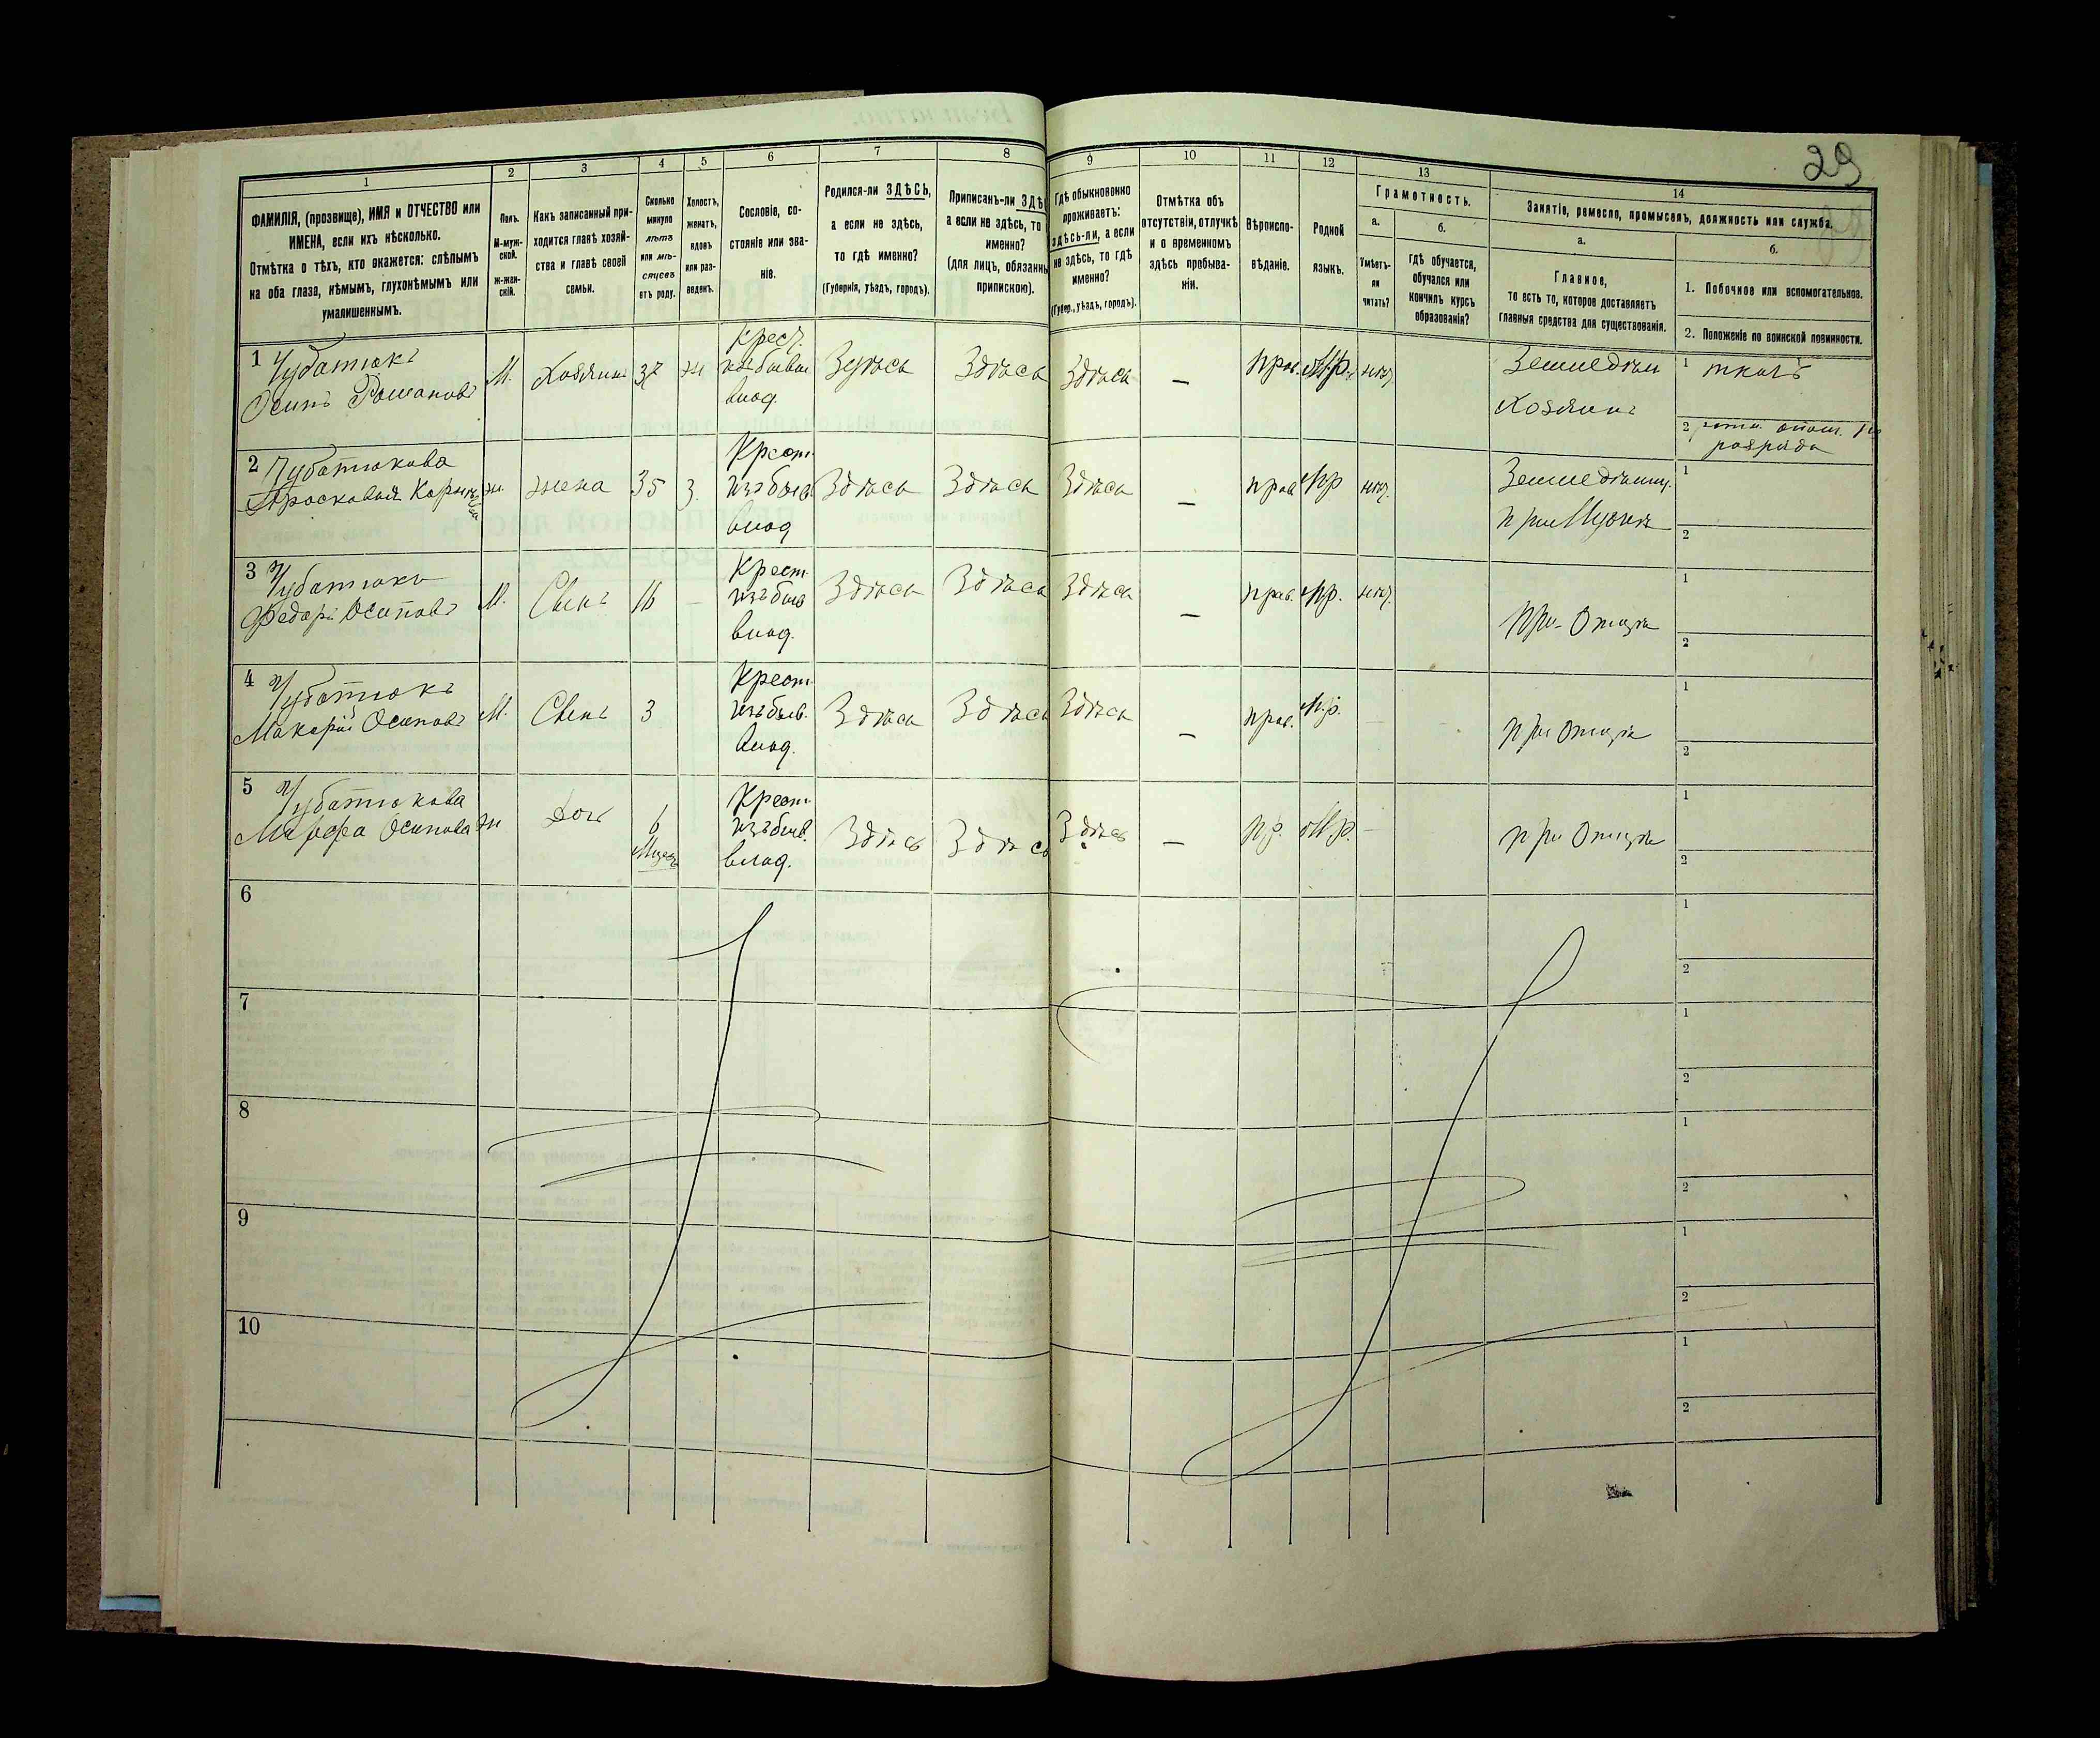 29
1 2 3 4 5 6 7 8 9 10 11 12 13 14
ФАМИЛІЯ, (прозвище), ИМЯ и ОТЧЕСТВО или
ИМЕНА, если ихъ нѣсколько.
Отмѣтка о тѣхъ, кто окажется: слѣпымъ
на оба глаза, нѣмымъ, глухонѣмымъ или
умалишеннымъ.
Полъ.
М-муж-
ской.
Ж-жен-
скій.
Какъ записанный при-
ходится главѣ хозяй-
ства и главѣ своей
семьи.
Сколько
минуло
лѣтъ
или мѣ-
сяцевъ
отъ роду.
Холостъ,
женатъ,
вдовъ
или раз-
веденъ.
Сословіе, со-
стояніе или зва-
ніе.
Родился-ли ЗДѢСЬ,
а если не здѣсь,
то гдѣ именно?
(Губернія, уѣздъ, городъ).
Приписанъ-ли ЗДѢ
а если не здѣсь, то
именно?
(для лицъ, обязанны
припискою).
Гдѣ обыкновенно
проживаетъ:
здѣсь-ли, а если
не здѣсь, то гдѣ
именно?
(Губер., уѣздъ, городъ).
Отмѣтка объ
отсутствіи, отлучкѣ
и о временномъ
здѣсь пребыва-
ніи.
Вѣроиспо-
вѣданіе.
Родной
языкъ.
Грамотность.
а.
Умѣетъ-
ли
читать?
б.
гдѣ обучается,
обучался или
кончилъ курсъ
образованія?
Занятіе, ремесло, промыселъ, должность или служба.
а.
Главное,
то есть то, которое доставляетъ
главныя средства для существованія.
б.
1. Побочное или вспомогательное.
2. Положеніе по воинской повинности.
1 Чубатюкъ
Осипъ Романовъ
М. Хозяинъ 37 ж
Крест.
изъ бывш
влад.
Здѣсь Здѣсь Здѣсь — прав. М.р. нѣт.
Земледѣл
Хозяинъ
1 ткачъ
2 ратн. опол. 1го
разряда
2 Чубатюкова
Просковья Корнѣ
ж. жена 35 з.
Крест.
изъ бывш
влад
Здѣсь Здѣсь Здѣсь — прав Мр нѣт.
Земледѣлиц.
при Мужѣ
1
2
3 Чубатюкъ
Федоръ Осиповъ
М. Сынъ 16 —
Крест.
изъ бывш
влад.
Здѣсь Здѣсь Здѣсь — прав. Мр. нѣт.
При Отцѣ
1
2
4 Чубатюкъ
Макарій Осиповъ
М. Сынъ 3
Крест.
изъ бывш.
влад.
Здѣсь Здѣсь Здѣсь — прав. М.р. —
при Отцѣ
1
2
5 Чубатюкова
Марфа Осипова
ж Дочь 6
Мѣсяц
Крест.
изъ бывш.
влад.
Здѣсь Здѣсь Здѣсь — пр. М.р. —
при Отцѣ
1
2
6
1
2
7
1
2
8
1
2
9
1
2
10
1
2